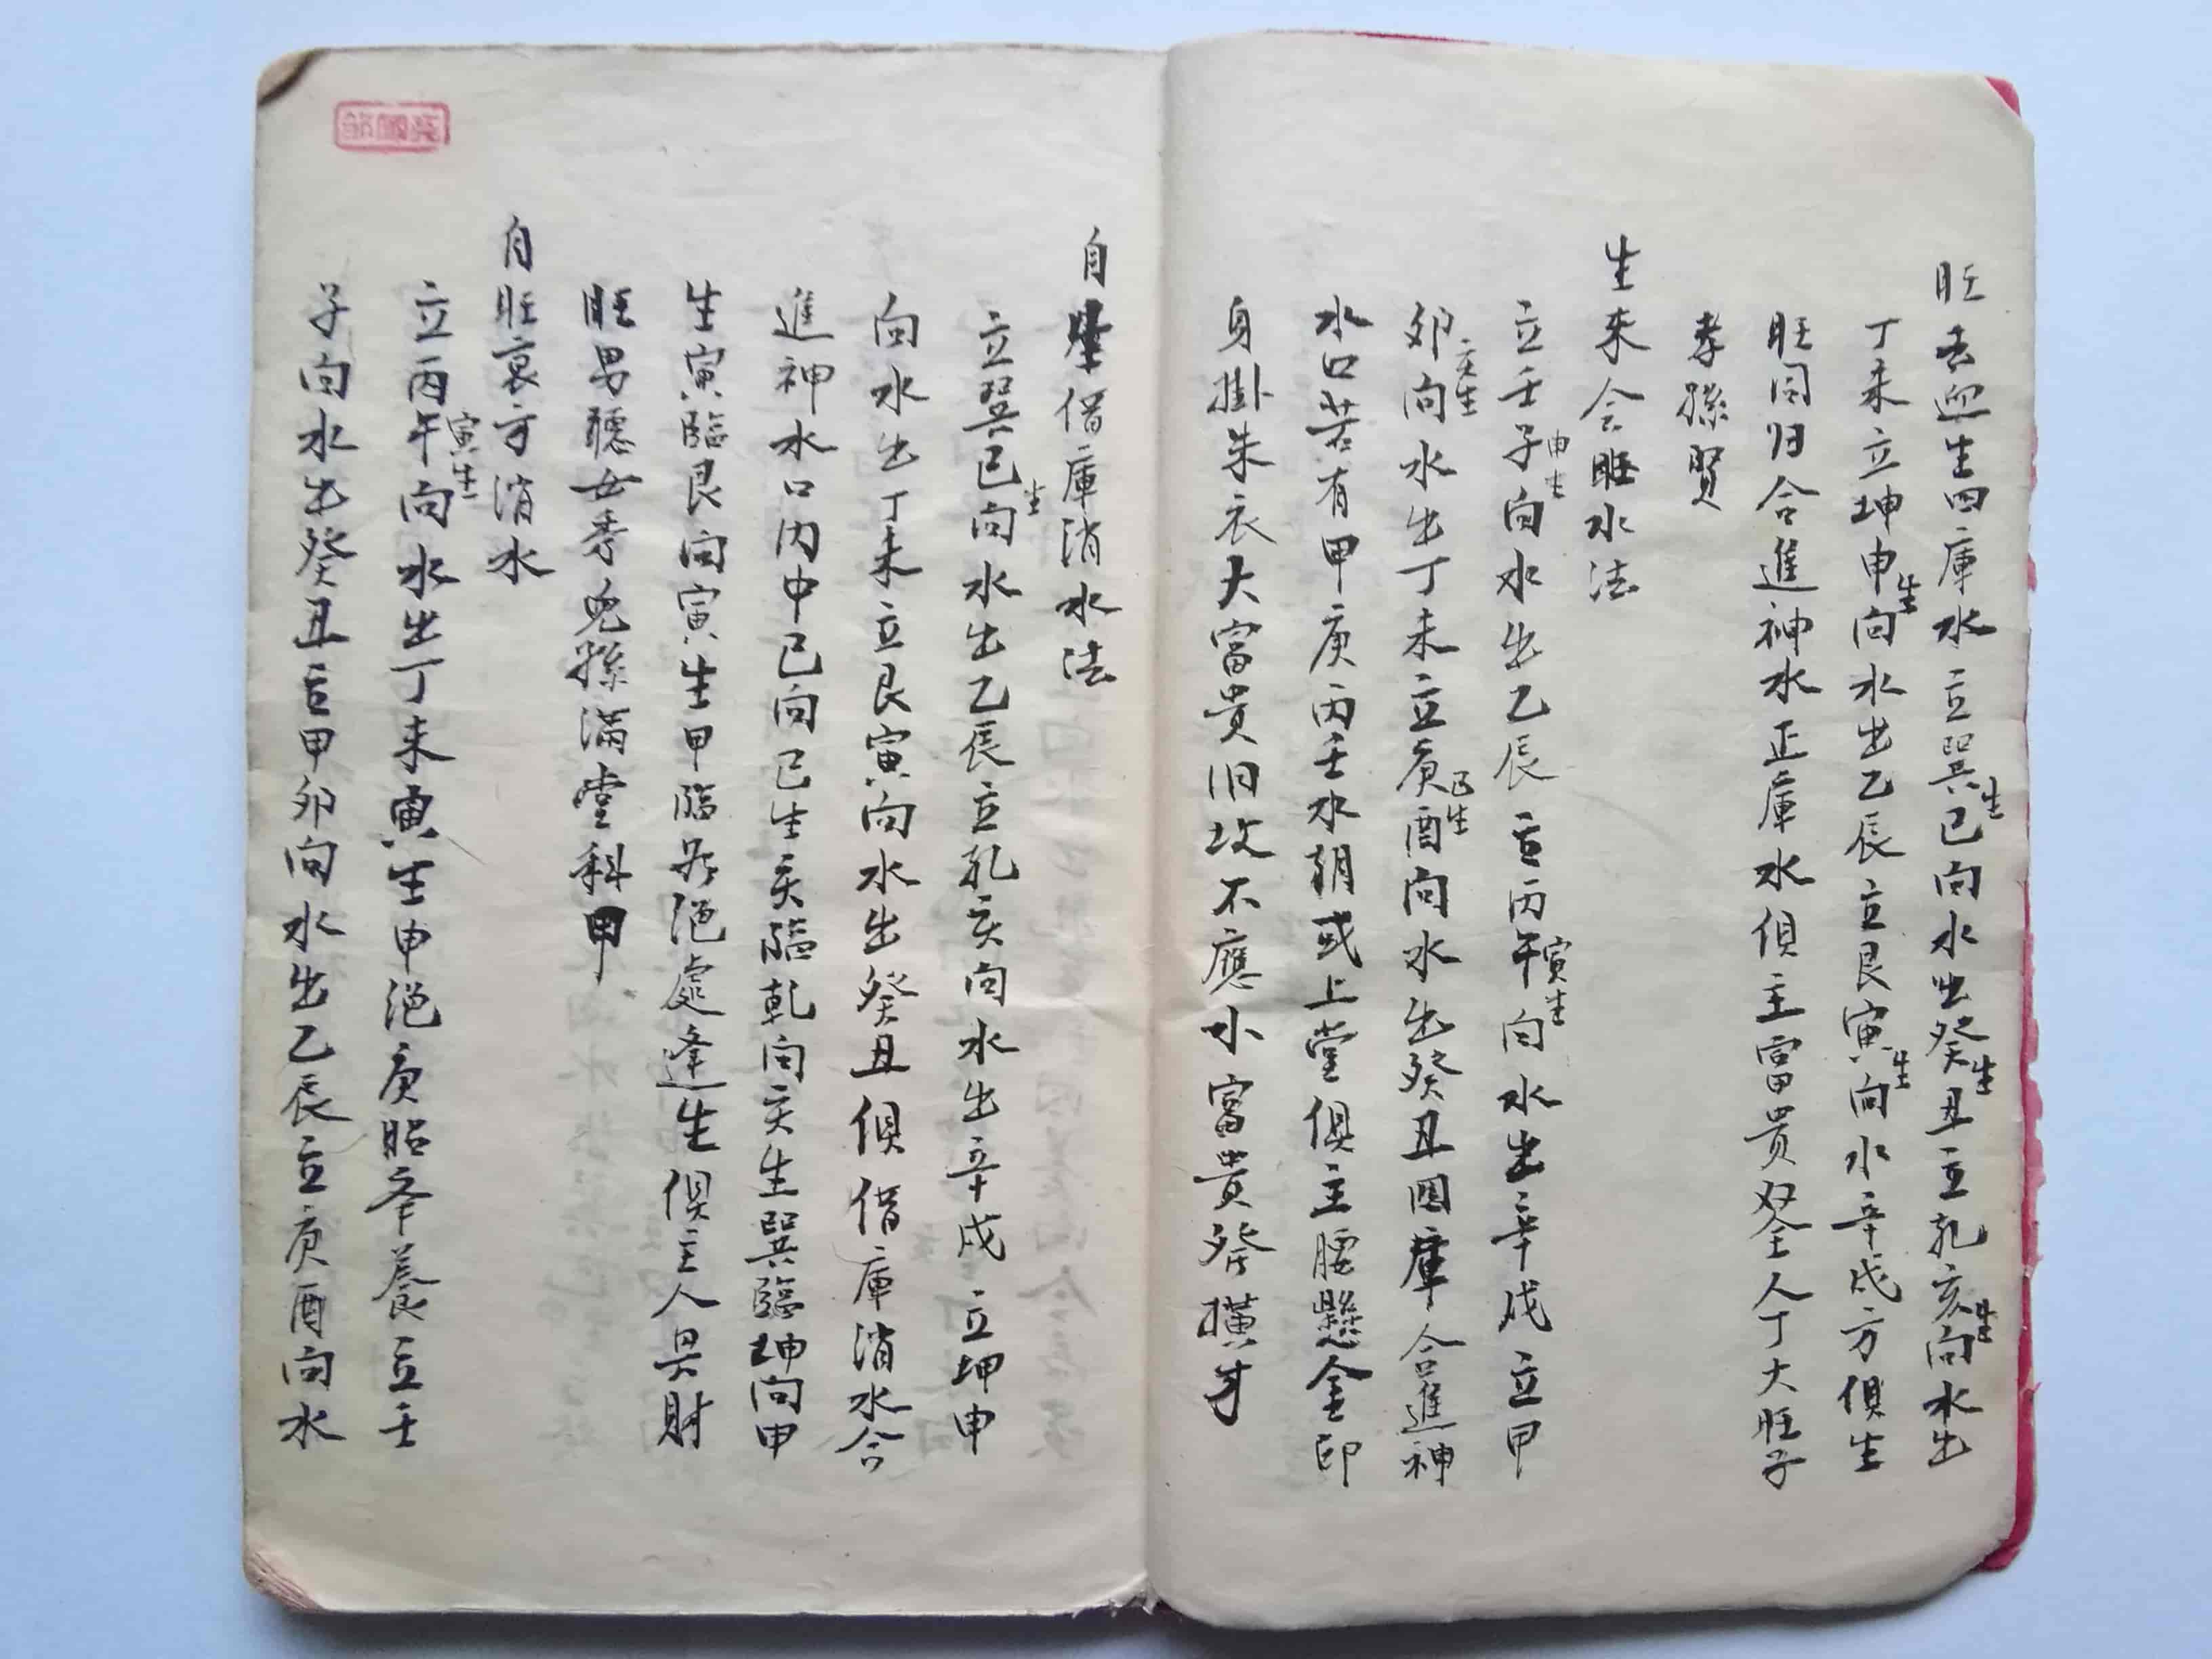 旺去迎生四庫水立巽巳生向水出癸生丑立乹亥生向水出
丁未立坤申生向水出乙辰立艮寅生向水辛戌方俱生
旺同归合進神水正庫水俱主富贵双全人丁大旺子
孝孫賢
生来会旺水法
立壬子申生向水出乙辰立丙午寅生向水出辛戌立甲
卯亥生向水出丁未立庚酉巳生向水出癸丑四庫合進神
水口若有甲庚丙壬水朝或上堂俱主腰懸金印
身掛朱衣大富贵旧坟不應小富贵發横才
自生借庫消水法
立巽巳生向水出乙辰立乹亥向水出辛戌立坤申
向水出丁未立艮寅向水出癸丑俱借庫消水合
進神水口内中巳向巳生亥臨乾向亥生巽臨坤向申
生寅臨艮向寅生甲臨絕處逢生俱主人財
旺男聰女秀兒孫滿堂科甲
自旺衰方消水
立丙午寅生向水出丁未寅生申絕庚養立壬
子向水出癸丑立甲卯向水出乙辰立庚酉向水